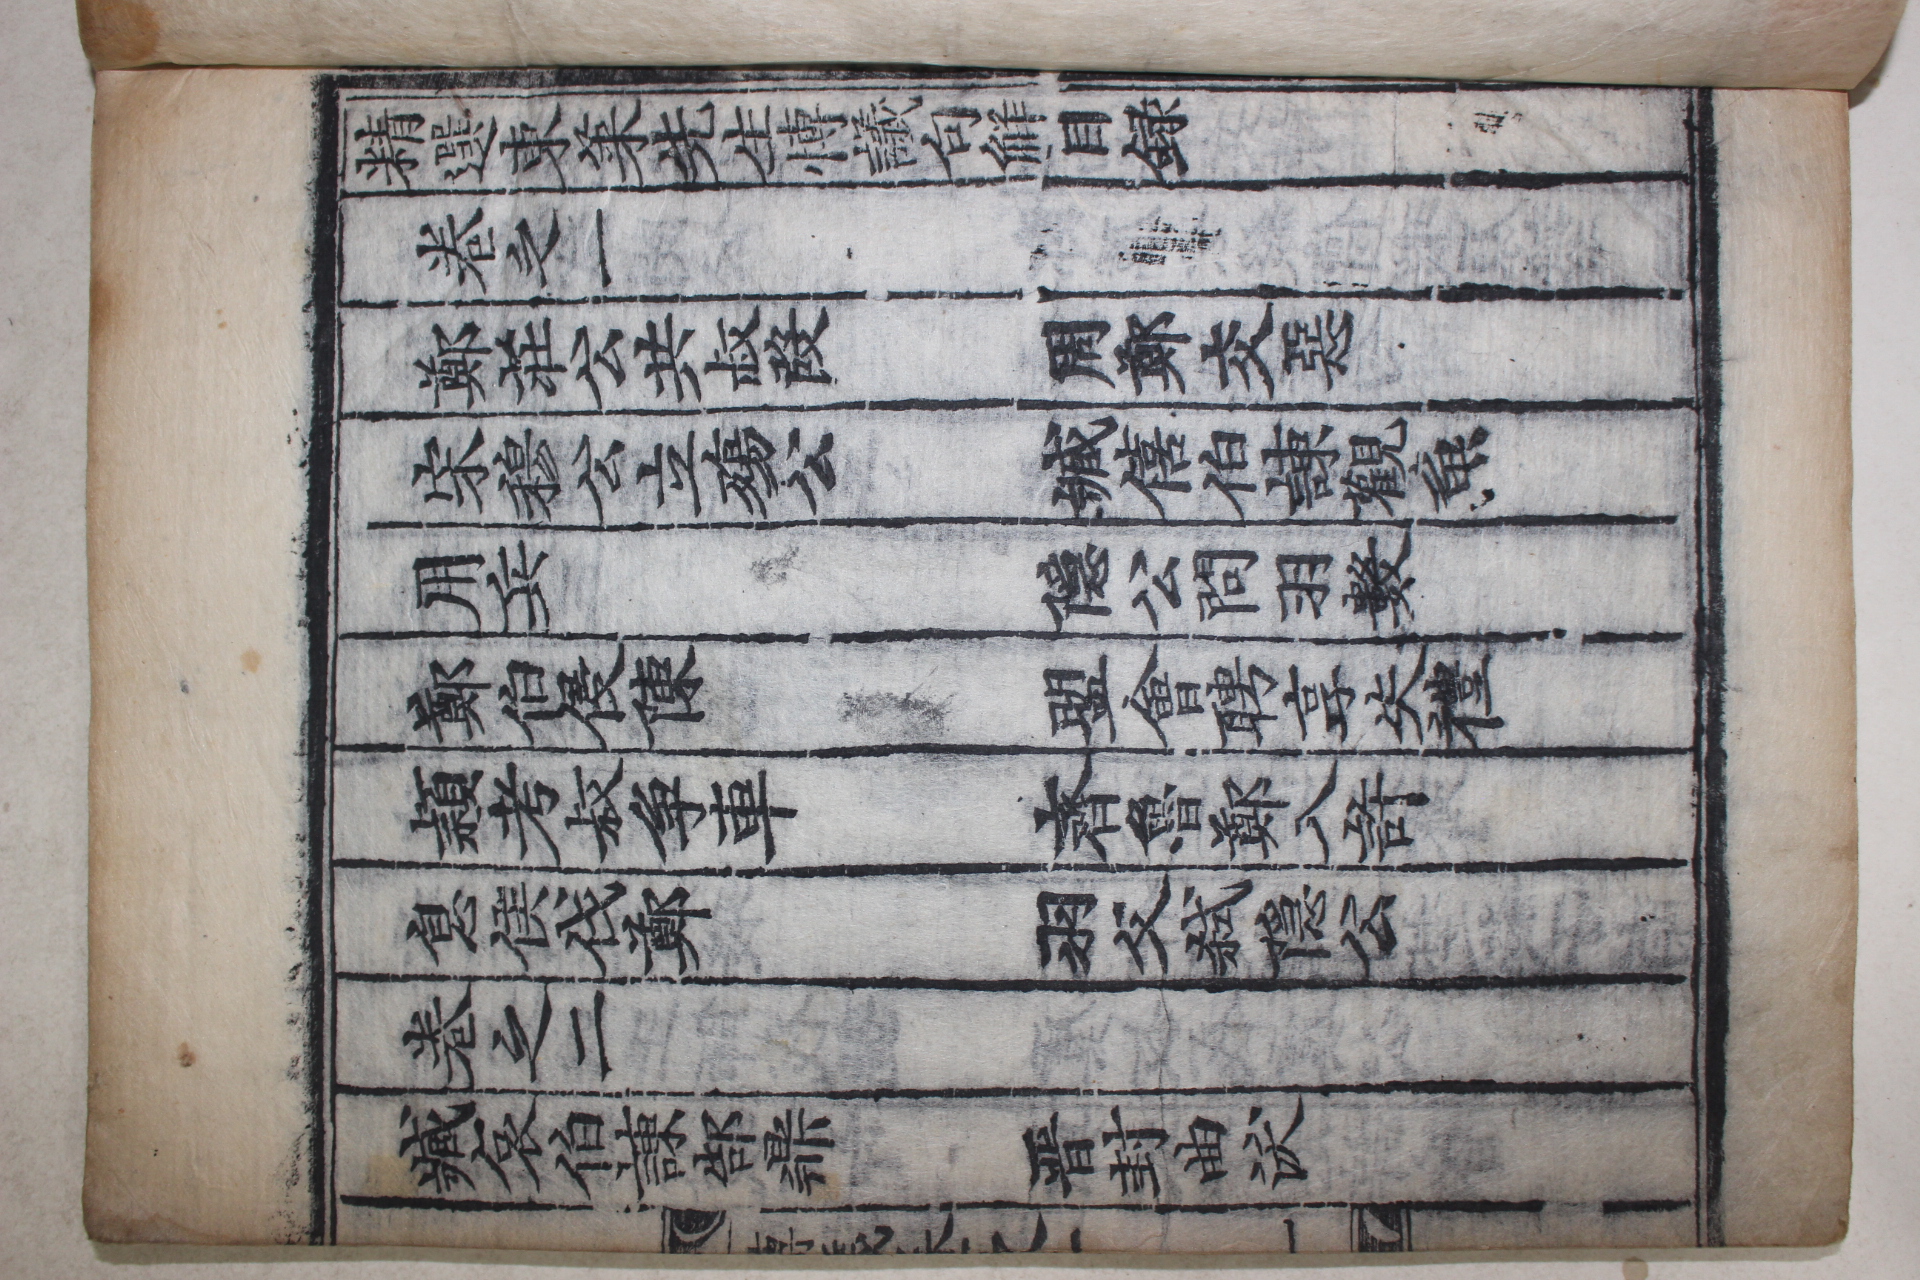 精選東萊先生博議句解目録
卷之一
鄭莊公共叔段 周鄭交惡
宋穆公立殤公 臧僖伯諫觀魚
用兵 隠公問羽數
鄭伯侵陳 盟會聘享失禮
穎考叔争車 齊魯鄭入許
息侯伐鄭 羽父弑隠公
卷之二
臧哀伯諫郜鼎 晋封曲沃